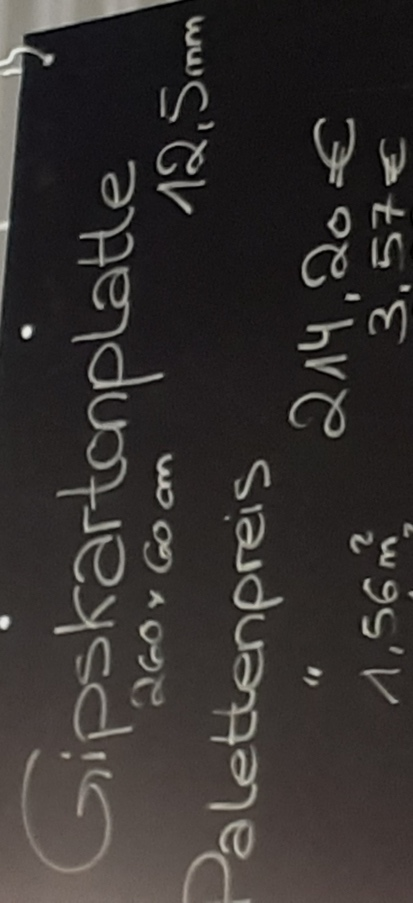 Gipskartonplatte
260 x 60 cm 12,5mm
Palettenpreis
" 214,20 €
1,56 m² 3,57 €